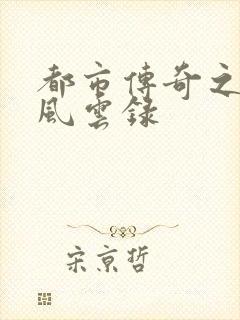 都市傳奇之
風雲錄
宋京哲